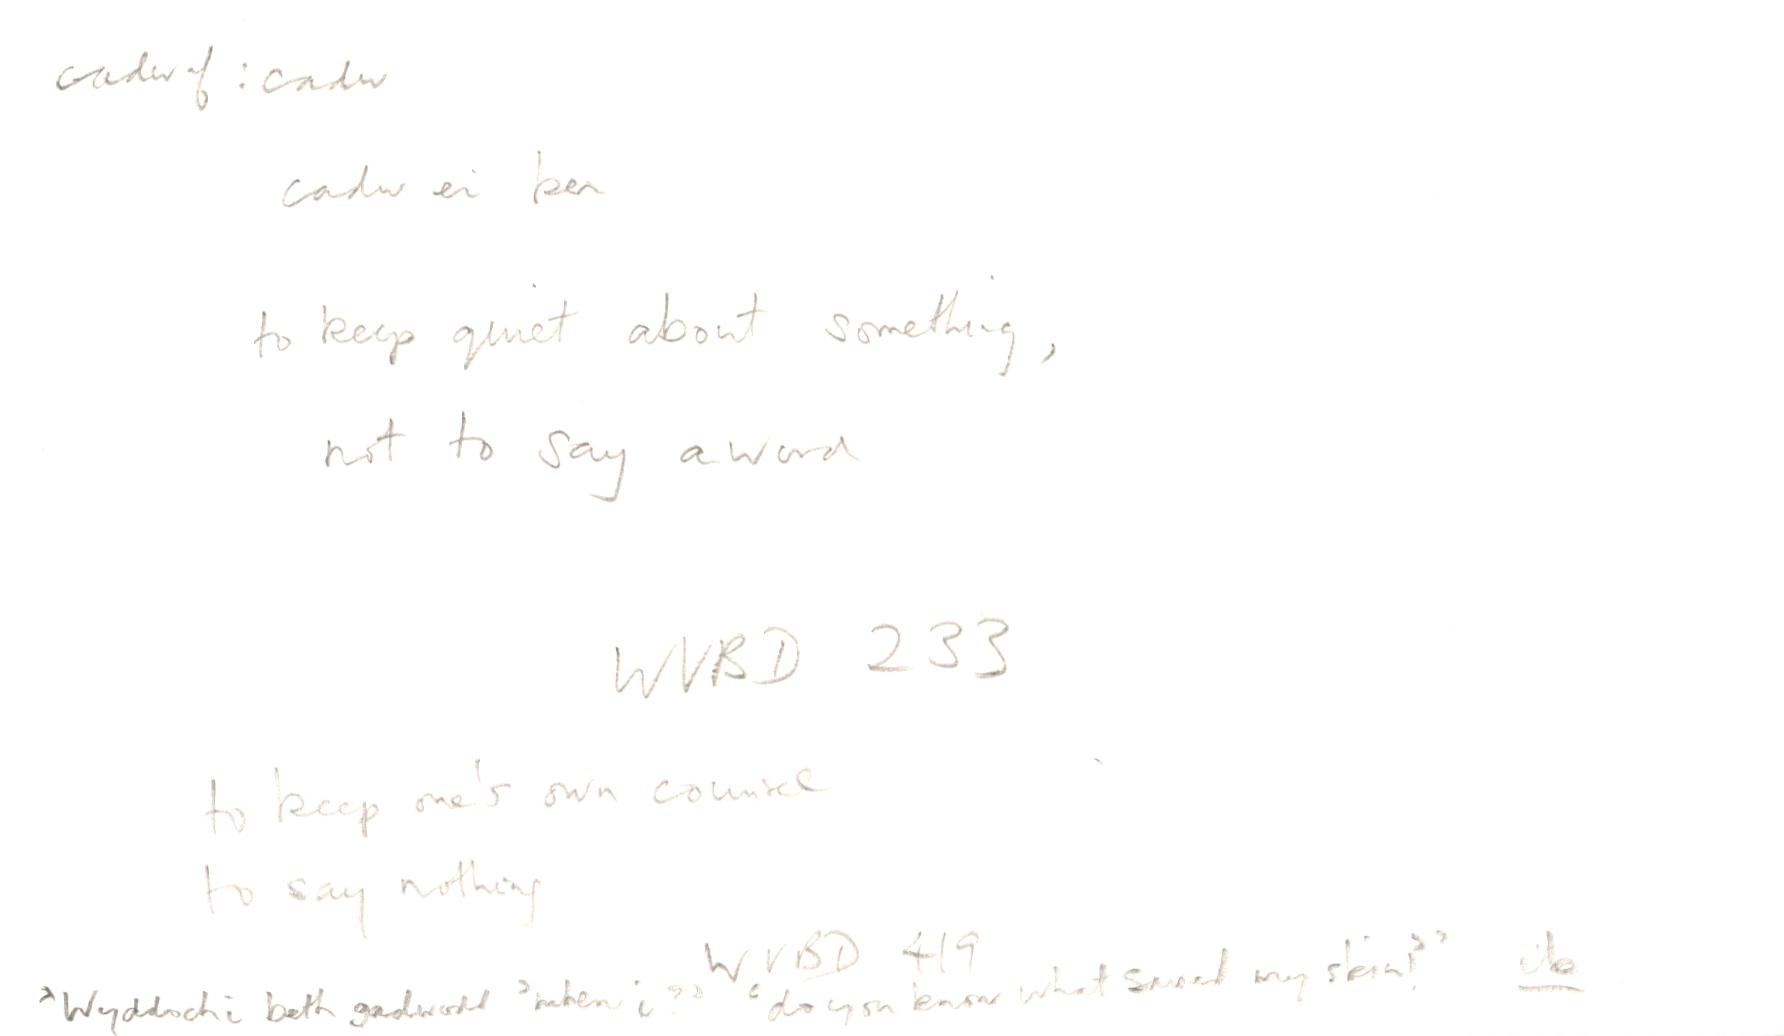 cadwaf : cadw
cadw ei ben
to keep quiet about something,
not to say a word
WVBD 233
to keep one's own counsel
to say nothing
WVBD 419
"Wyddochi beth gadwodd 'mhen i?" "do you know what saved my skin?" ib